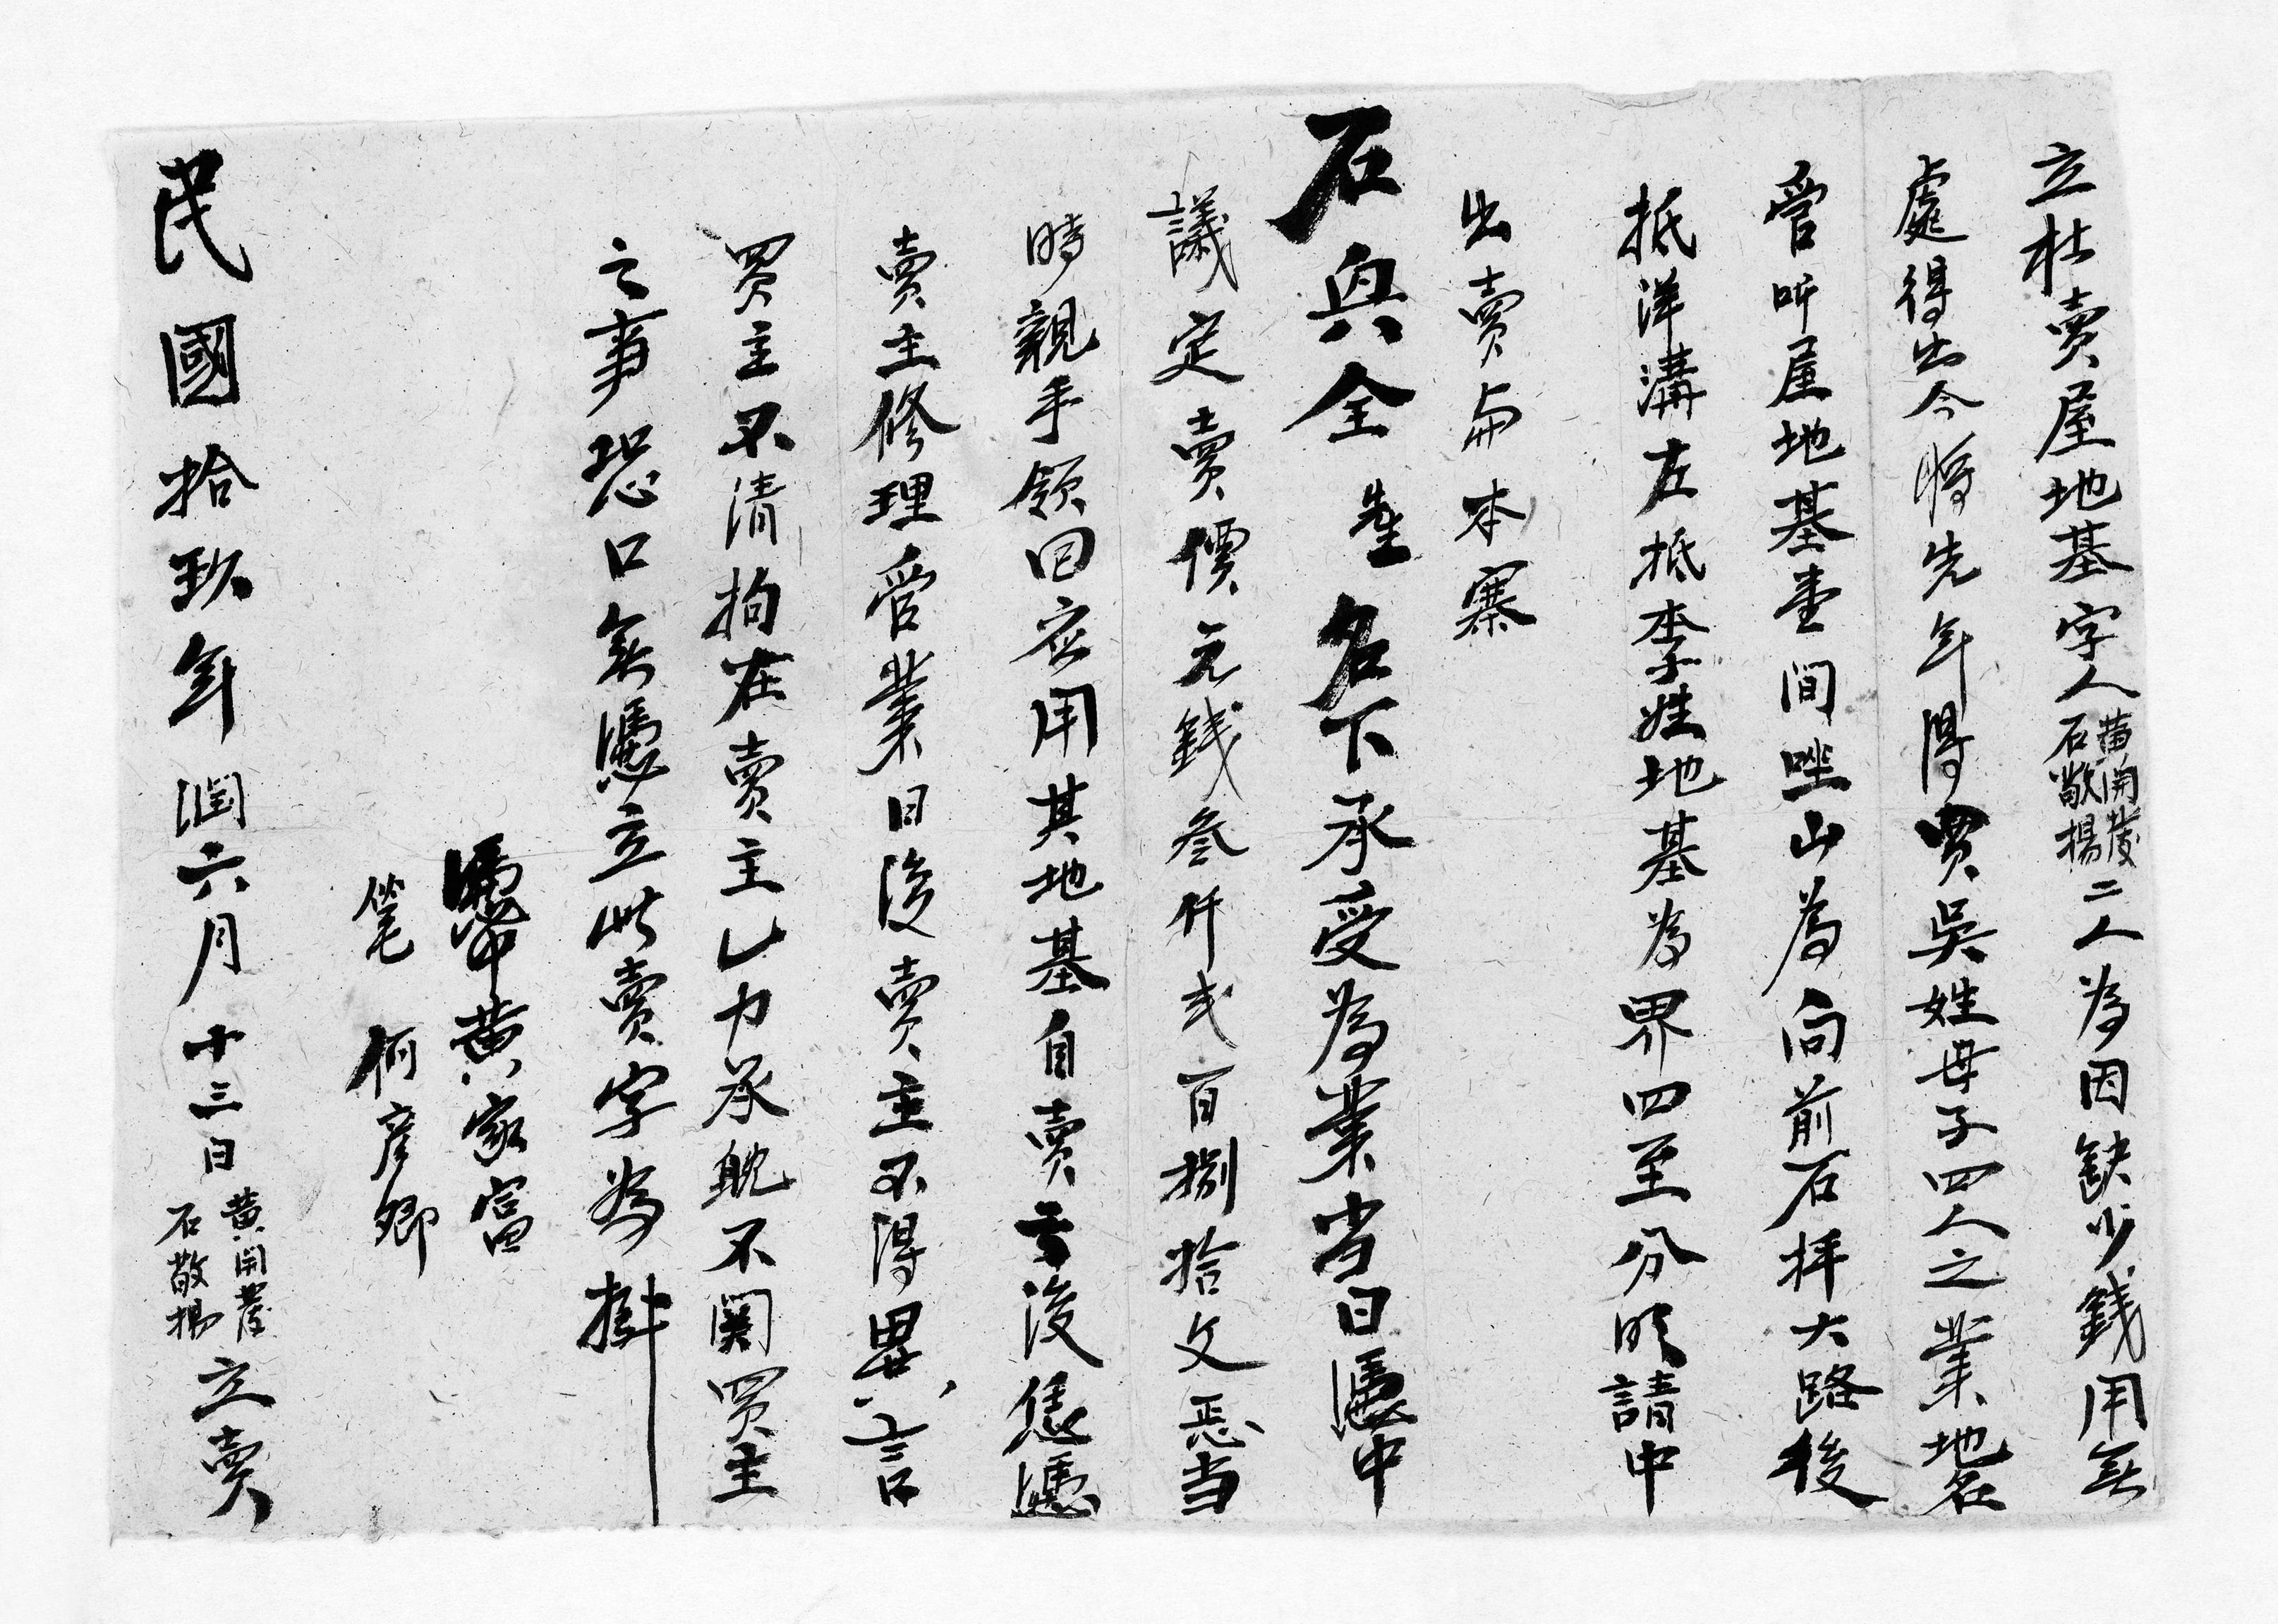 立杜賣屋地基字人黃開發石敬揚二人為因缺少錢用無
處得出今將先年得買吳姓母子四人之業地名
管听屋地基壹間唑山為向前石拝大路後
抵洋溝左抵李姓地基為界四至分明請中
出賣與本寨
石與全先生名下承受為業当日憑中
議定賣價元錢叁仟弍百捌拾文悉当
時親手領囬应用其地基自賣之後恁憑
賣主修理管業日後賣主不得異言
買主不清拘在賣主乚力承躭不関買主
之事恐口無憑立此賣字為㨿
憑中黃家富
筆 何彥卿
民國拾玖年潤六月十三日黃開發石敬揚立賣